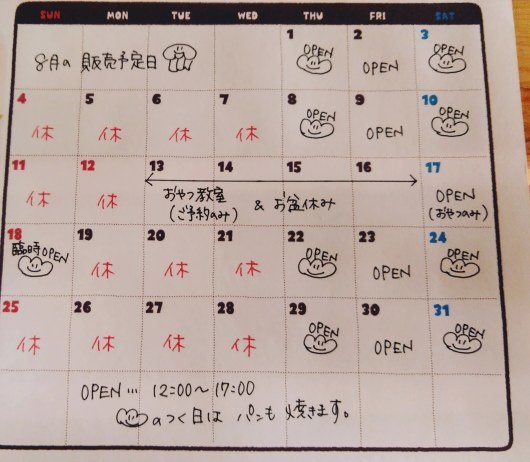 SUN MON TUE WED THU FRI SAT
8月の 販売予定日
1 2 3
OPEN OPEN OPEN
4 5 6 7 8 9 10
休 休 休 休 OPEN OPEN OPEN
11 12 13 14 15 16 17
休 休 おやつ教室 & お盆休み OPEN
(ご予約のみ) (おやつのみ)
18 19 20 21 22 23 24
臨時OPEN 休 休 休 OPEN OPEN OPEN
25 26 27 28 29 30 31
休 休 休 休 OPEN OPEN OPEN
OPEN… 12:00〜17:00
のつく日は パンも 焼きます。